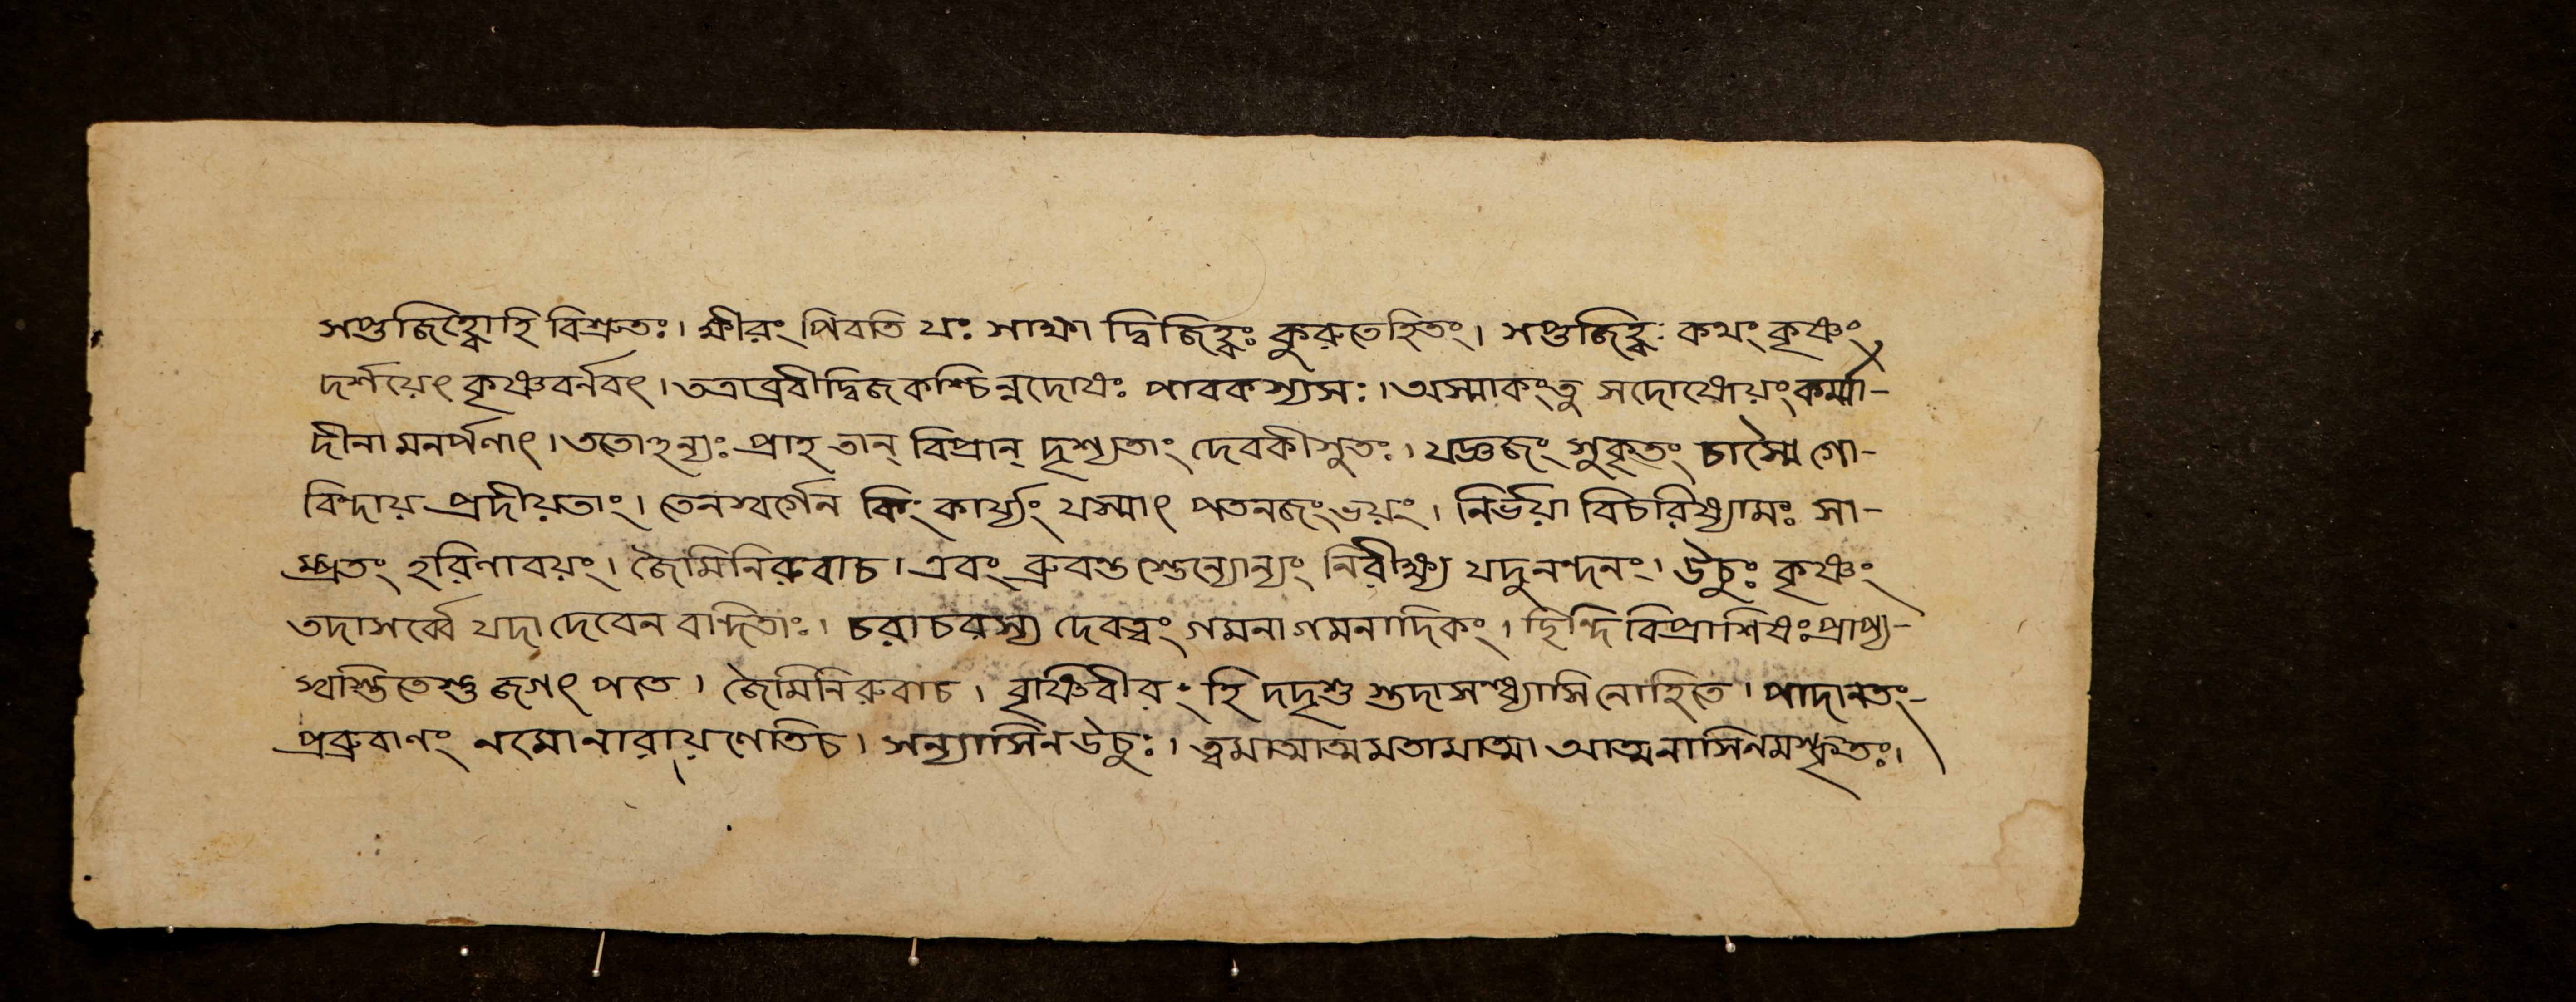 সপ্তজিহ্বোহি বিশ্রুতঃ। ক্ষীরং পিবতি যঃ সাক্ষা দ্বিজিহ্বঃ কুরুতেহিতং। সপ্তজিহ্বঃ কথং কৃষ্ণং
দর্শয়েৎ কৃষ্ণবর্নবৎ। তত্রাব্রেবীদ্বিজকশ্চিন্নদোষঃ পাবকস্যসঃ। অস্মাকংতু সদোষোয়ং কর্ম্মা-
দীনা মনর্পণাৎ। ততোঽন্যঃ প্রাহ তান্ বিপ্রান্ দৃশ্যতাং দেবকীসুতঃ। যজ্ঞজং সুকৃতং চাস্মৈ গো-
বিন্দায় প্রদীয়তাং। তেনস্বর্গেন কিং কার্য্যং যস্মাৎ পতনজংভয়ং। নির্ভয়া বিচরিষ্যামঃ সা-
ম্প্রতং হরিণাবয়ং। জৈমিনিরুবাচ। এবং ব্রুবন্ত স্তেন্যোন্যং নিরীক্ষ্য যদুনন্দনং। উচুঃ কৃষ্ণং
তদাসর্ব্বে যদা দেবেন বান্দিতাঃ। চরাচরস্য দেবত্বং গমনাগমনাদিকং। ছিন্দি বিপ্রাশিষঃ প্রাপ্য-
স্বস্তিতেস্তু জগৎ পতে। জৈমিনিরুবাচ। বৃষ্ণিবীরং হি দদৃশু স্তদাসন্ন্যাসিনোহিতে। পাদানতং-
প্রব্রুবাণং নমোনারায়ণেতিচ। সন্ন্যাসিন উচুঃ। ত্বমাত্মাত্মমতামাত্মা আত্মনাসিনমস্কৃতঃ।